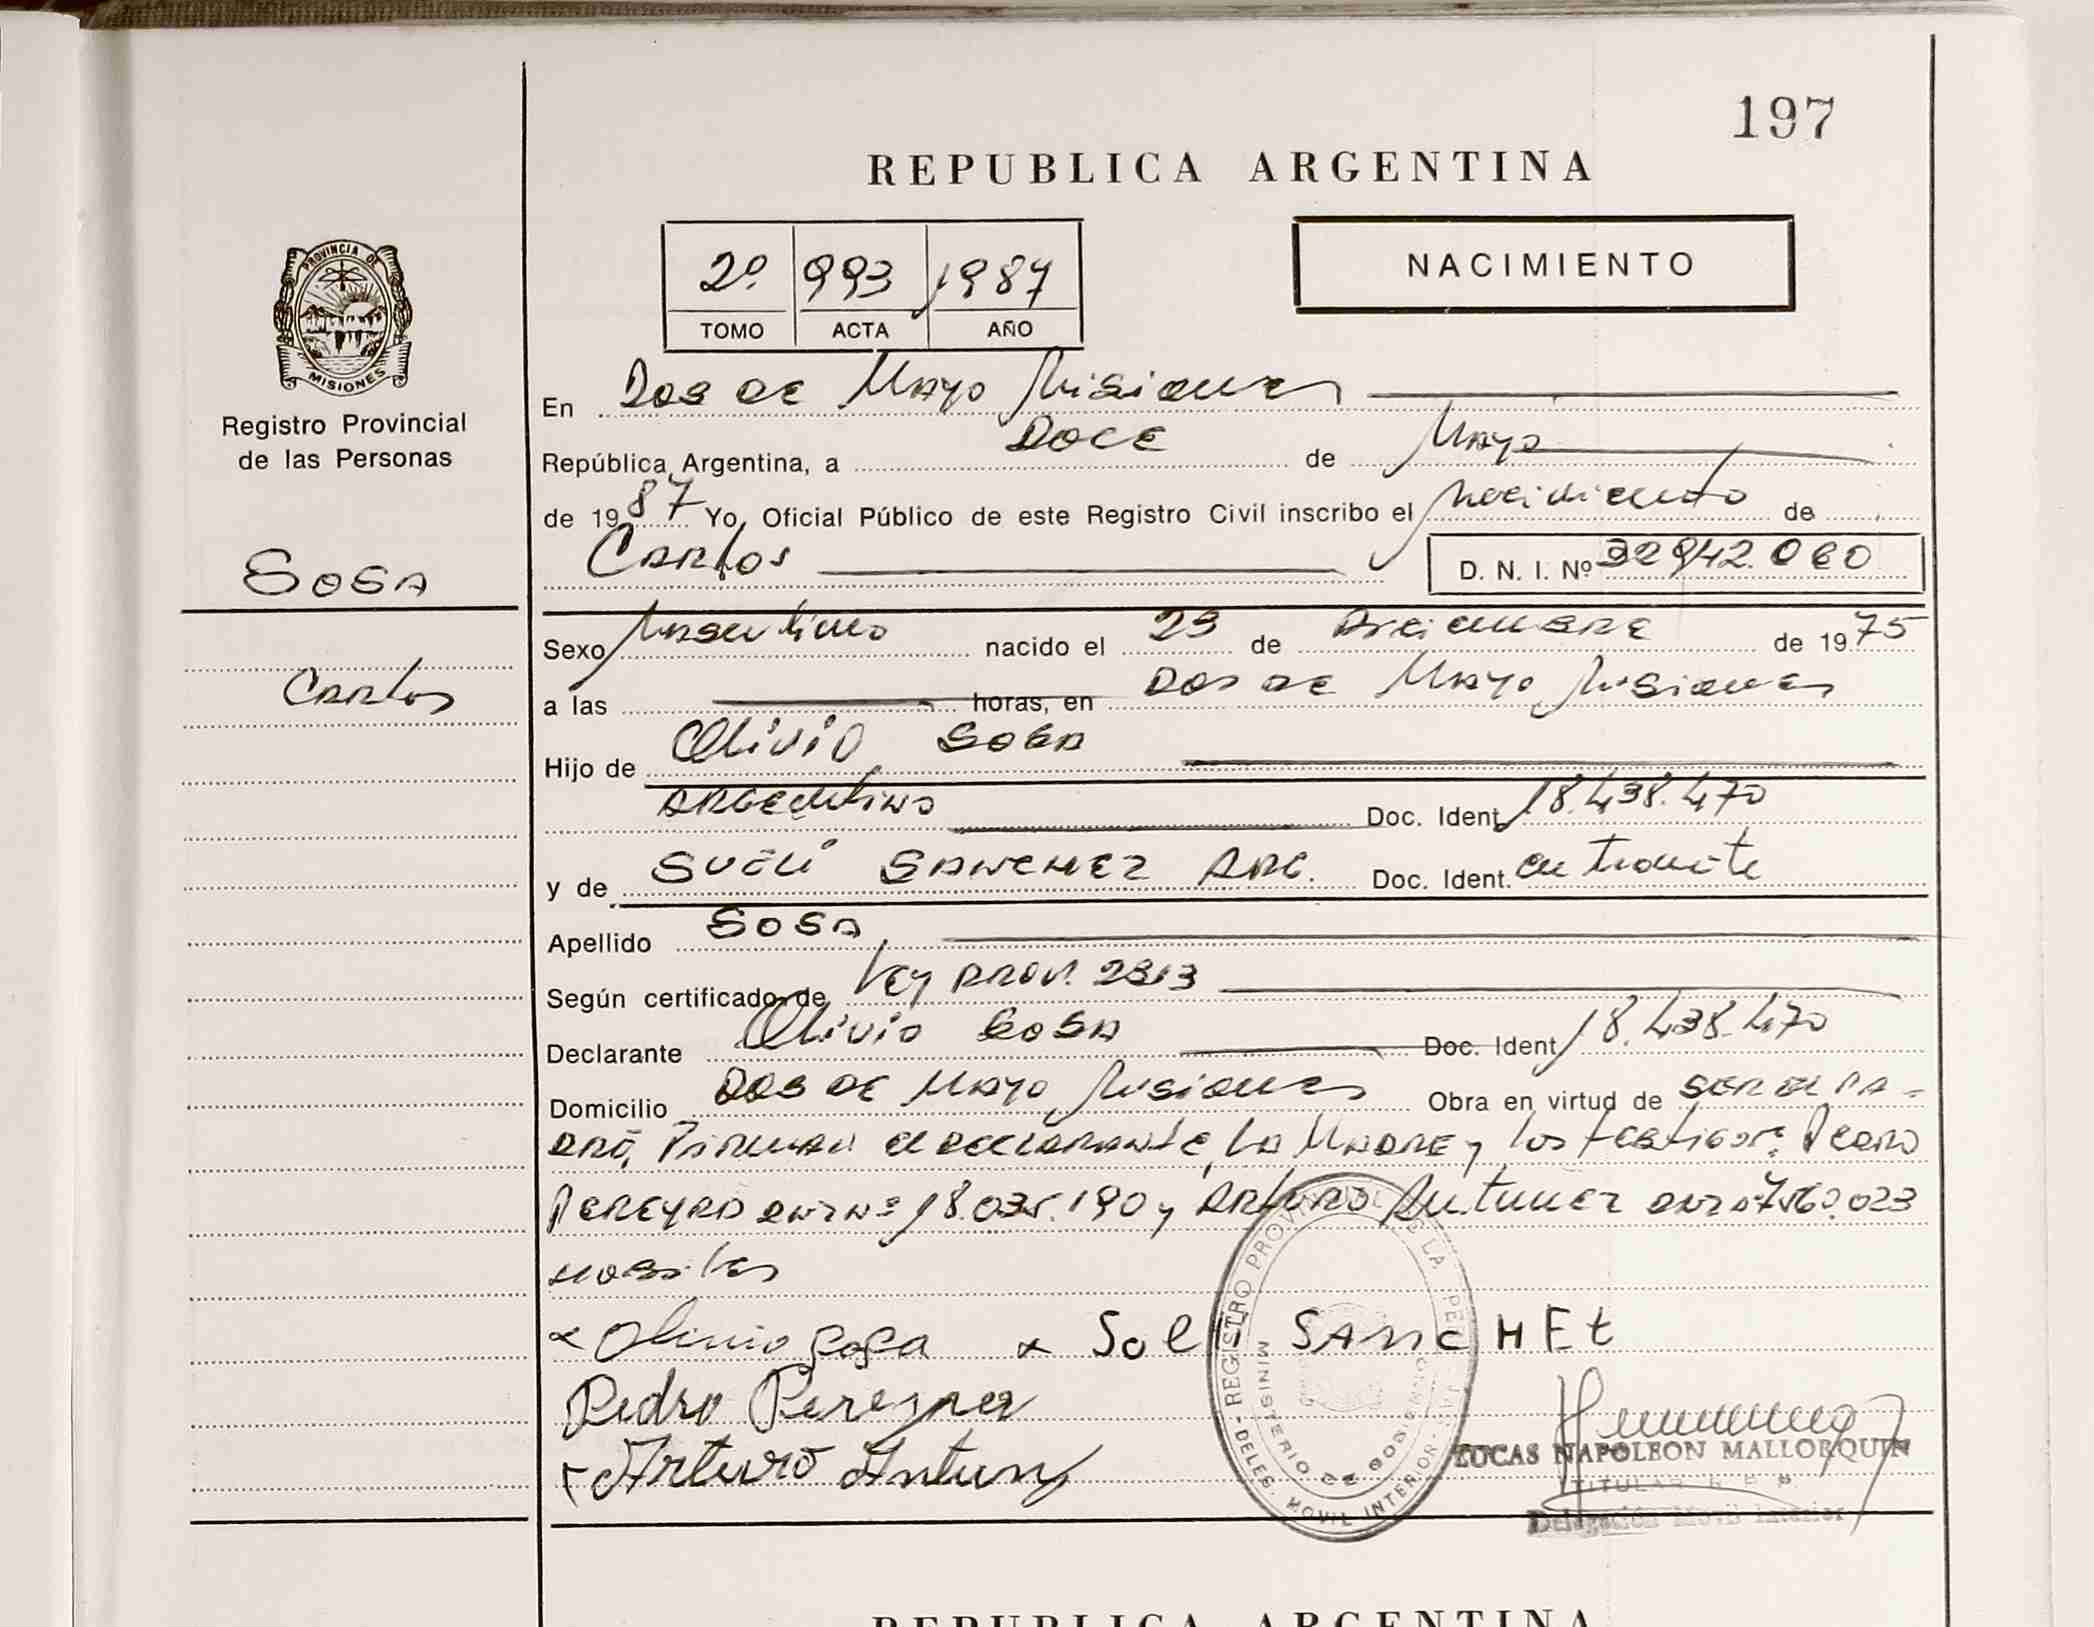 197
REPUBLICA ARGENTINA
2º 993 1987
TOMO ACTA AÑO
NACIMIENTO
PROVINCIA DE
MISIONES
Registro Provincial
de las Personas
SOSA
Carlos
En Dos de Mayo Misiones
República Argentina, a DOCE de Mayo
de 1987 Yo, Oficial Público de este Registro Civil inscribo el nacimiento de
Carlos D. N. I. Nº 32942.060
Sexo Masculino nacido el 23 de Diciembre de 1975
a las horas, en Dos de Mayo Misiones
Hijo de Olivio Sosa
Argentino Doc. Ident. 18.438.470
y de Sueli Sanchez Arg. Doc. Ident. en tramite
Apellido Sosa
Según certificado de Ley Prov. 2313
Declarante Olivio Sosa Doc. Ident. 18.438.470
Domicilio Dos de Mayo Misiones Obra en virtud de ser el pa-
dre, Firman el declarante, la Madre y los testigos: Pedro
Pereyra DNI Nº 18.035.190 y Arturo Antunez DNI 7.560.023
habiles
x Olivio Sosa x SOELI SANCHEt
Pedro Pereyra
Arturo Antunz
REGISTRO PROVINCIAL DE LA PER
MINISTERIO DE GOBIERNO
DELEG. MOVIL INTERIOR
LUCAS NAPOLEON MALLORQUIN
TITULAR
Delegación Movil Interior
REPUBLICA ARGENTINA